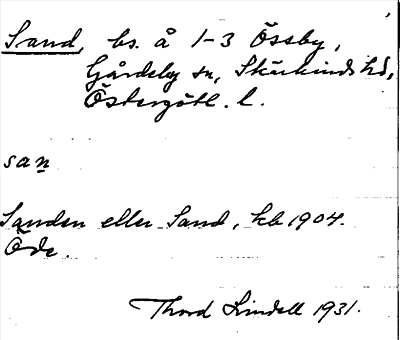 Sand, bs. å 1-3 Össby,
Gårdeby sn, Skärkinds hd,
Östergötl. l.
san
Sanden eller Sand, kb 1904.
Öde.
Thord Lindell 1931.